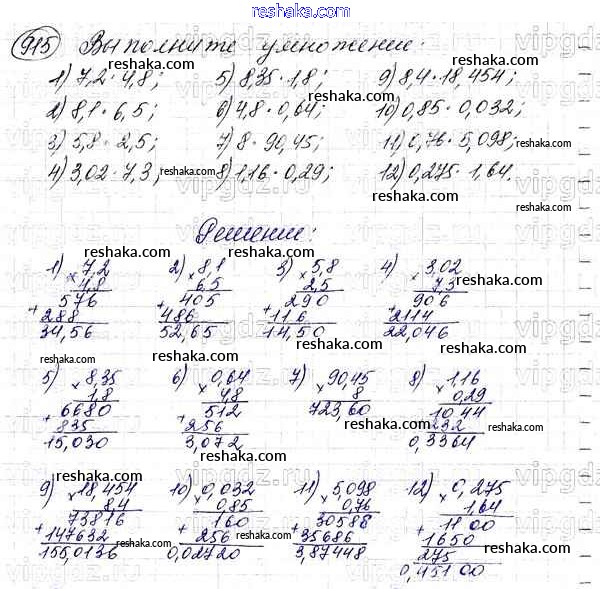 reshaka.com
915 Выполните умножение:
1) 7,2 · 4,8; 5) 8,35 · 1,8; 9) 8,4 · 18,454;
2) 8,1 · 6,5; 6) 4,8 · 0,64; 10) 0,85 · 0,032;
3) 5,8 · 2,5; 7) 8 · 90,45; 11) 0,76 · 5,098;
4) 3,02 · 7,3; 8) 1,16 · 0,29; 12) 0,275 · 1,64.
Решение:
1) × 7,2 2) × 8,1 3) × 5,8 4) × 3,02
4,8 6,5 2,5 7,3
576 405 290 906
+ 288 + 486 + 116 + 2114
34,56 52,65 14,50 22,046
5) × 8,35 6) × 0,64 7) × 90,45 8) × 1,16
1,8 4,8 8 0,29
6680 512 723,60 1044
+ 835 + 256 + 232
15,030 3,072 0,3364
9) × 18,454 10) × 0,032 11) × 5,098 12) × 0,275
8,4 0,85 0,76 1,64
73816 160 30588 1100
+ 147632 + 256 + 35686 + 1650
155,0136 0,02720 3,87448 275
0,45100